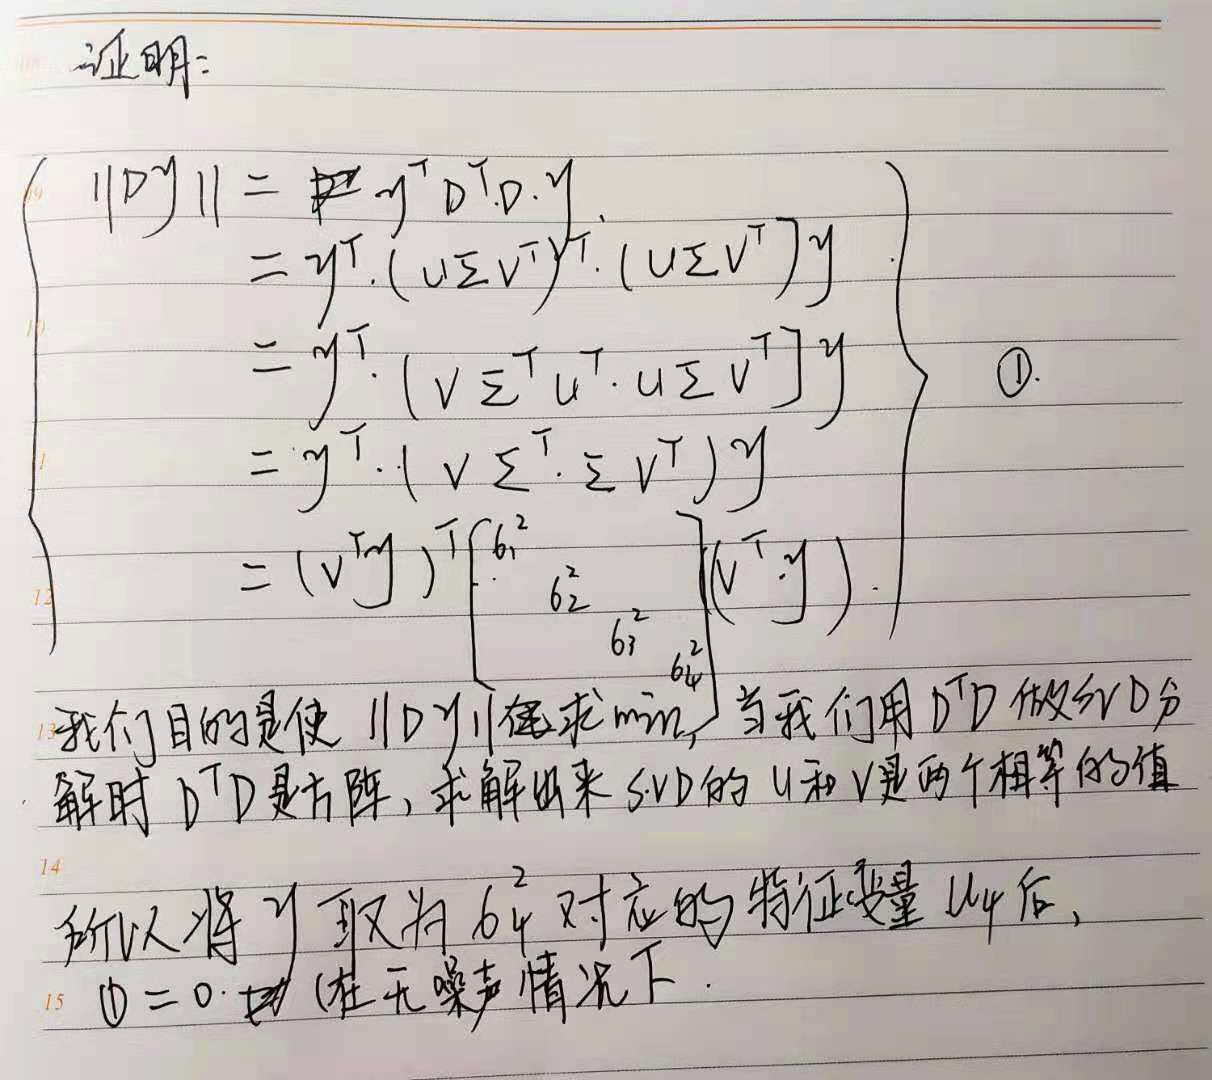 证明:
||Dy|| = y^T D^T.D.y.
= y^T.(UΣV^T)^T.(UΣV^T)y
= y^T.(VΣ^T U^T.UΣV^T)y
= y^T.(VΣ^T.ΣV^T)y
①.
= (V^T y)^T [σ₁² σ₂² σ₃² σ₄²] (V^T.y).
我们目的是使 ||Dy|| 求min, 当我们用 D^T D 做SVD分
解时 D^T D 是方阵, 求解出来 SVD的 U和V是两个相等的值
所以将 y 取为 σ₄² 对应的特征变量 U₄后,
① = 0. (在无噪声情况下.
09
10
11
12
13
14
15